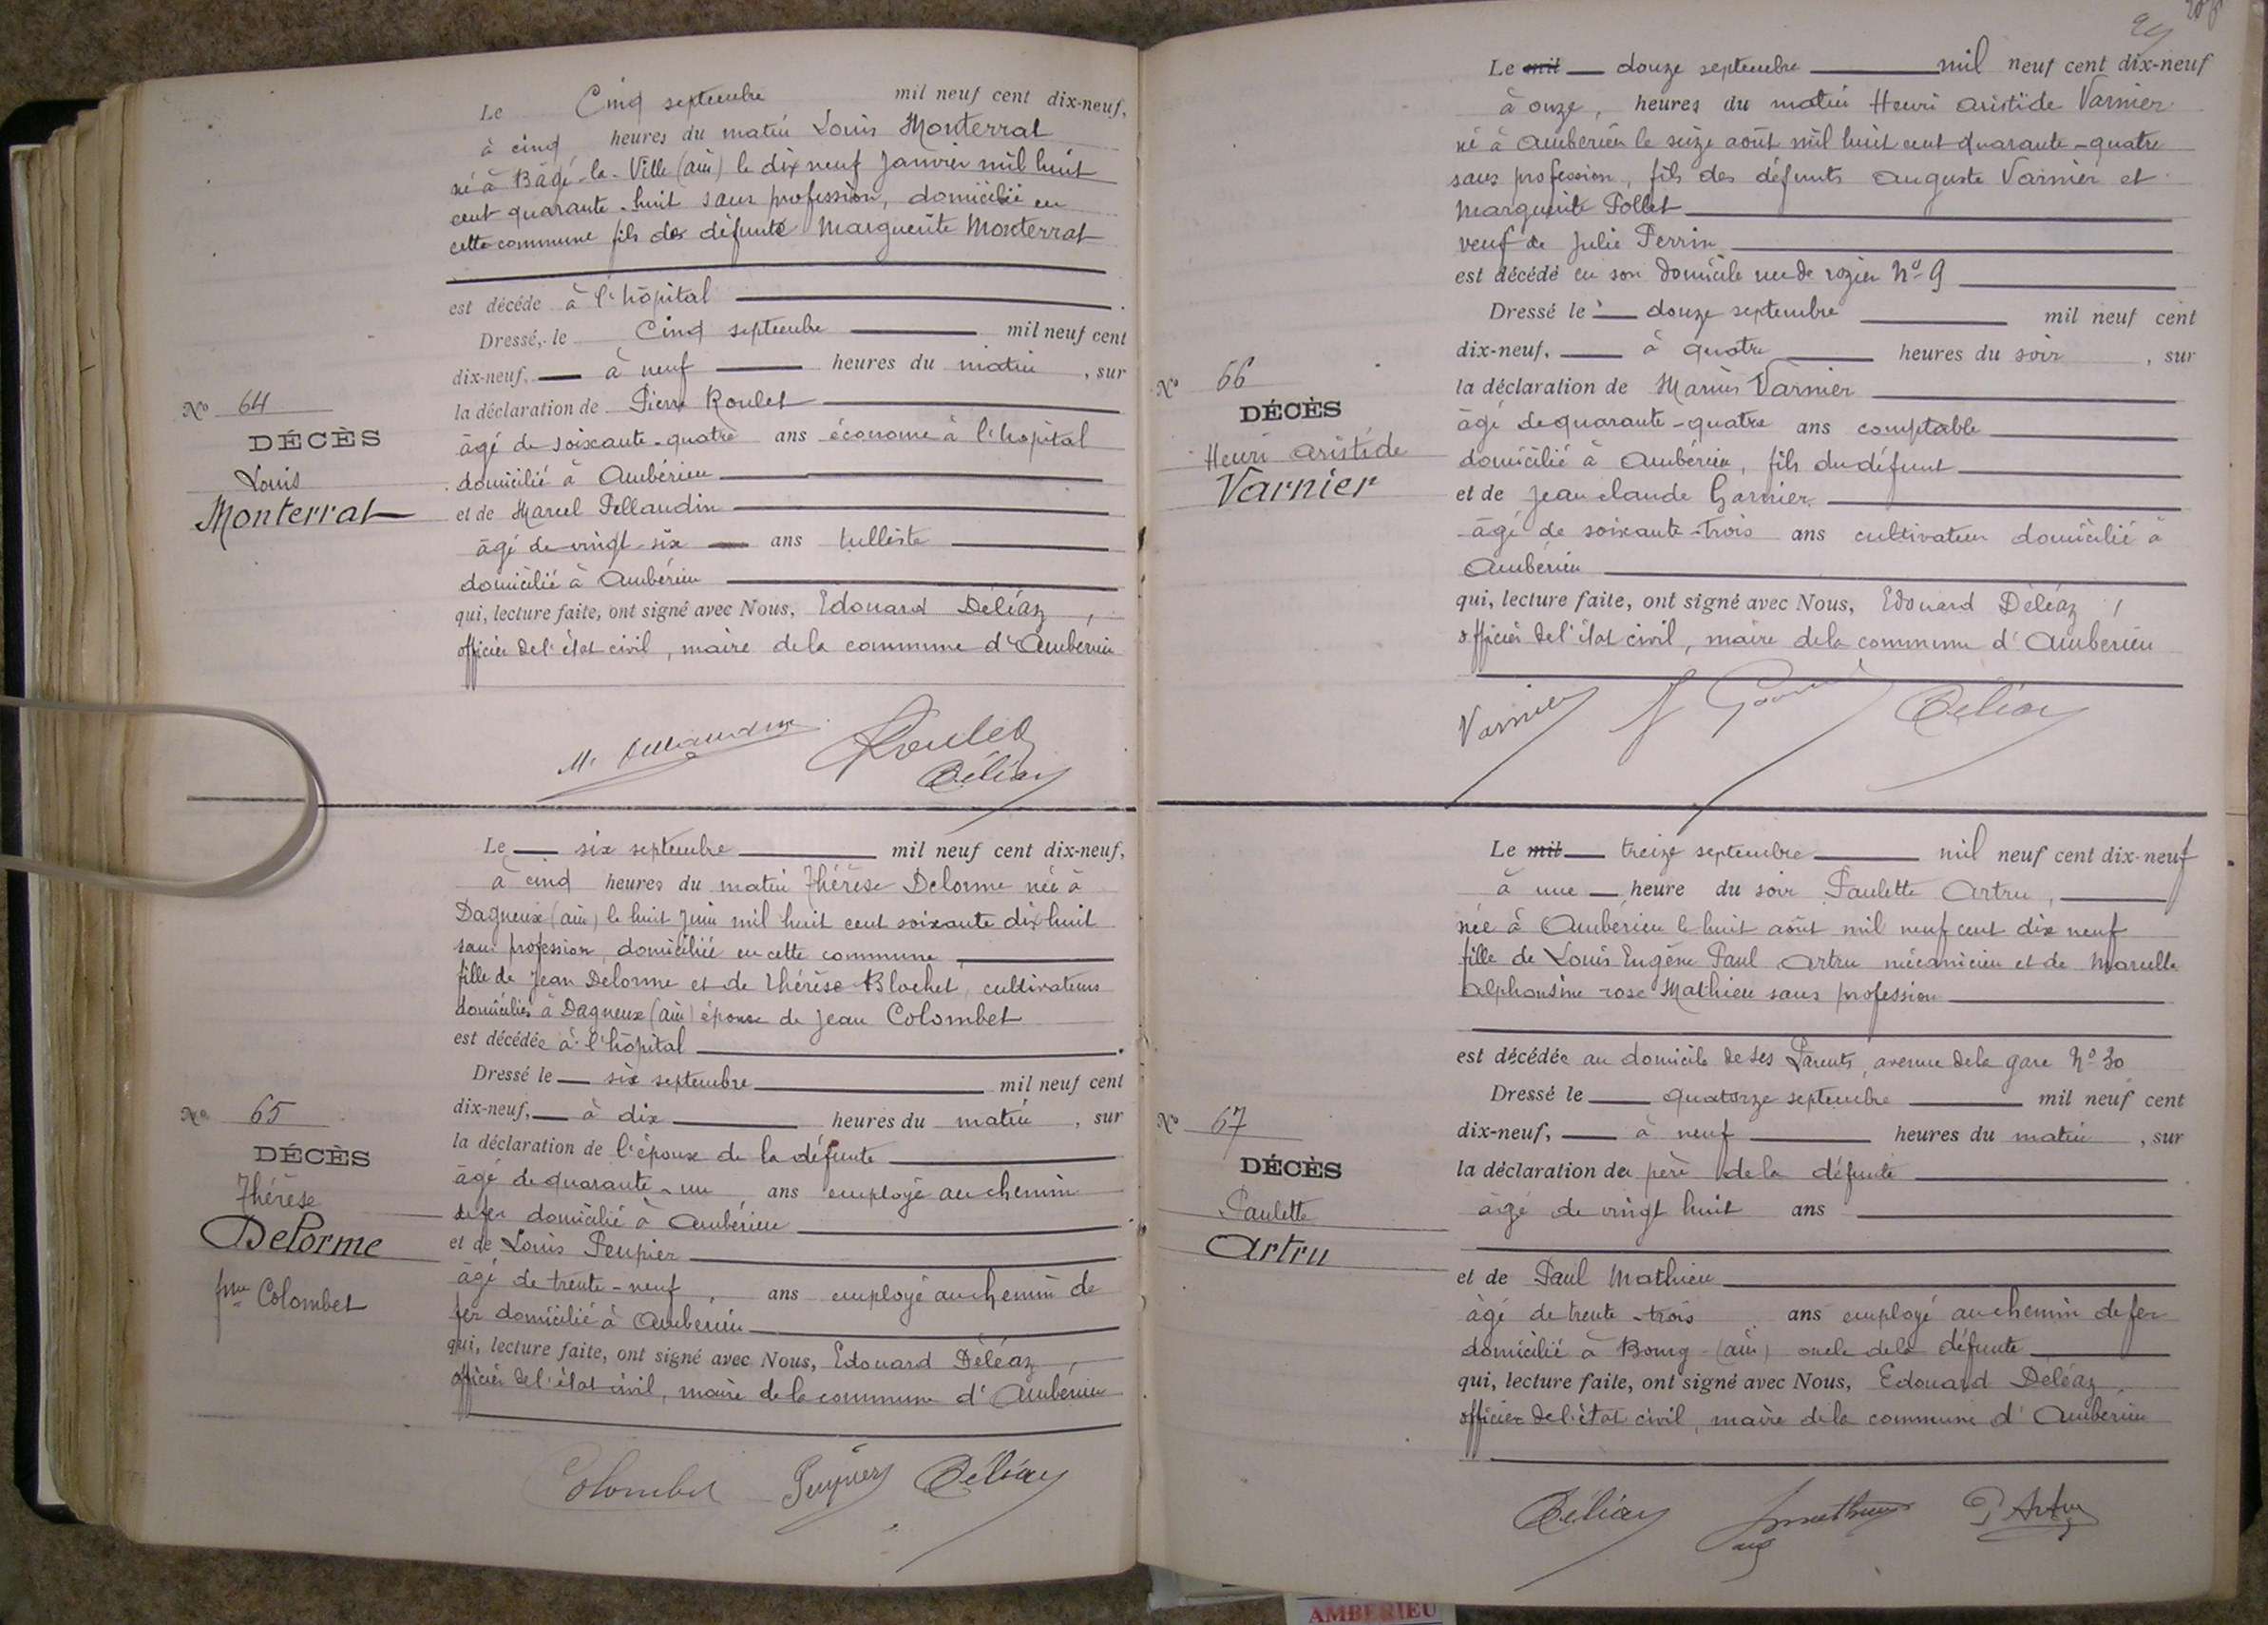 Le Cinq septembre mil neuf cent dix-neuf,
à cinq heures du matin Louis Monterrat
né à Bâgé-la-Ville (ain) le dix neuf Janvier mil huit
cent quarante-huit sans profession, domicilié en
cette commune fils de défunte Marguerite Monterrat
est décédé à l'hôpital
Dressé, le Cinq septembre mil neuf cent
dix-neuf, à neuf heures du matin, sur
la déclaration de Pierre Roulet
âgé de soixante-quatre ans économe à l'hopital
domicilié à Ambérieu
et de Marcel Pellaudin
âgé de vingt-six ans tulliste
domicilié à Ambérieu
qui, lecture faite, ont signé avec Nous, Edouard Déléaz,
officier de l'état civil, maire de la commune d'Ambérieu
Nº 64
DÉCÈS
Louis
Monterrat
Roulet
Déléaz
Le six septembre mil neuf cent dix-neuf,
à cinq heures du matin Thérèse Delorme née à
Dagneux (ain) le huit Juin mil huit cent soixante dix huit
sans profession, domiciliée en cette commune,
fille de Jean Delorme et de Thérèse Blochet, cultivateurs
domiciliés à Dagneux (ain) épouse de Jean Colombet
est décédée à l'hôpital
Dressé le six septembre mil neuf cent
dix-neuf, à dix heures du matin, sur
la déclaration de l'époux de la défunte
âgé de quarante-un ans employé au chemin
de fer domicilié à Ambérieu
et de Louis Peupier
âgé de trente-neuf, ans employé au chemin de
fer domicilié à Ambérieu
qui, lecture faite, ont signé avec Nous, Edouard Déléaz,
officier de l'état civil, maire de la commune d'Ambérieu
Nº 65
DÉCÈS
Thérèse
Delorme
fme Colombet
Colombet Peupier Déléaz
29
Le mil douze septembre mil neuf cent dix-neuf
à onze, heures du matin Henri Aristide Varnier
né à Ambérieu le seize août mil huit cent quarante-quatre
sans profession, fils des défunts Auguste Varnier et
Marguerite Pollet
veuf de Julie Perrin
est décédé en son domicile rue de rozier Nº 9
Dressé le douze septembre mil neuf cent
dix-neuf, à quatre heures du soir, sur
la déclaration de Marius Varnier
âgé de quarante-quatre ans comptable
domicilié à Ambérieu, fils du défunt
et de Jean Claude Garnier
âgé de soixante-trois ans cultivateur domicilié à
Ambérieu
qui, lecture faite, ont signé avec Nous, Edouard Déléaz,
officier de l'état civil, maire de la commune d'Ambérieu
Nº 66
DÉCÈS
Henri Aristide
Varnier
Varnier Déléaz
Le mil treize septembre mil neuf cent dix-neuf
à une heure du soir Paulette Artru,
née à Ambérieu le huit août mil neuf cent dix neuf
fille de Louis Eugène Paul Artru mécanicien et de Marcelle
Alphonsine rose Mathieu sans profession
est décédée au domicile de ses Parents, avenue de la gare Nº 30
Dressé le quatorze septembre mil neuf cent
dix-neuf, à neuf heures du matin, sur
la déclaration du père de la défunte
âgé de vingt huit ans
et de Paul Mathieu
âgé de trente-trois ans employé au chemin de fer
domicilié à Bourg (ain) oncle de la défunte
qui, lecture faite, ont signé avec Nous, Edouard Déléaz,
officier de l'état civil, maire de la commune d'Ambérieu
Nº 67
DÉCÈS
Paulette
Artru
Déléaz Mathieu P Artru
AMBERIEU